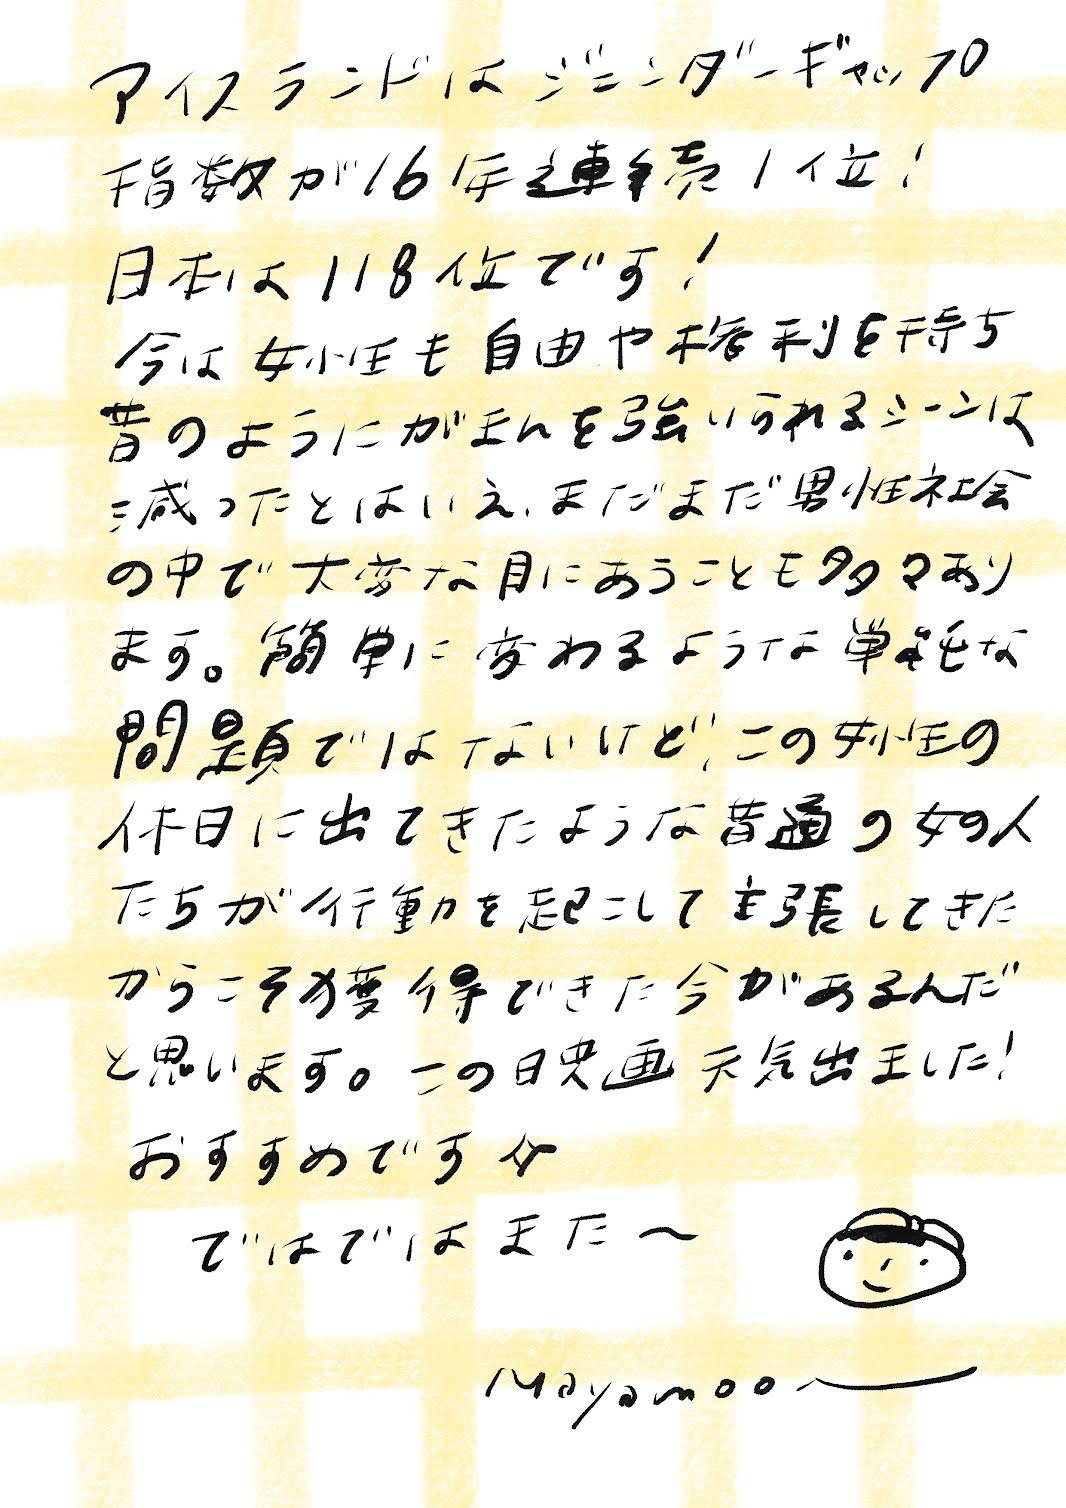 アイスランドはジェンダーギャップ
指数が16年連続1位!
日本は118位です!
今は女性も自由や権利を持ち
昔のようにがまんを強いられるシーンは
減ったとはいえ、まだまだ男性社会
の中で大変な目にあうことも多々あり
ます。簡単に変わるような単純な
問題ではないけど、この女性の
休日に出てきたような普通の女の人
たちが行動を起こして主張してきた
からこそ獲得できた今があるんだ
と思います。この映画元気出ました!
おすすめです☆
ではではまた〜
Mayamoo